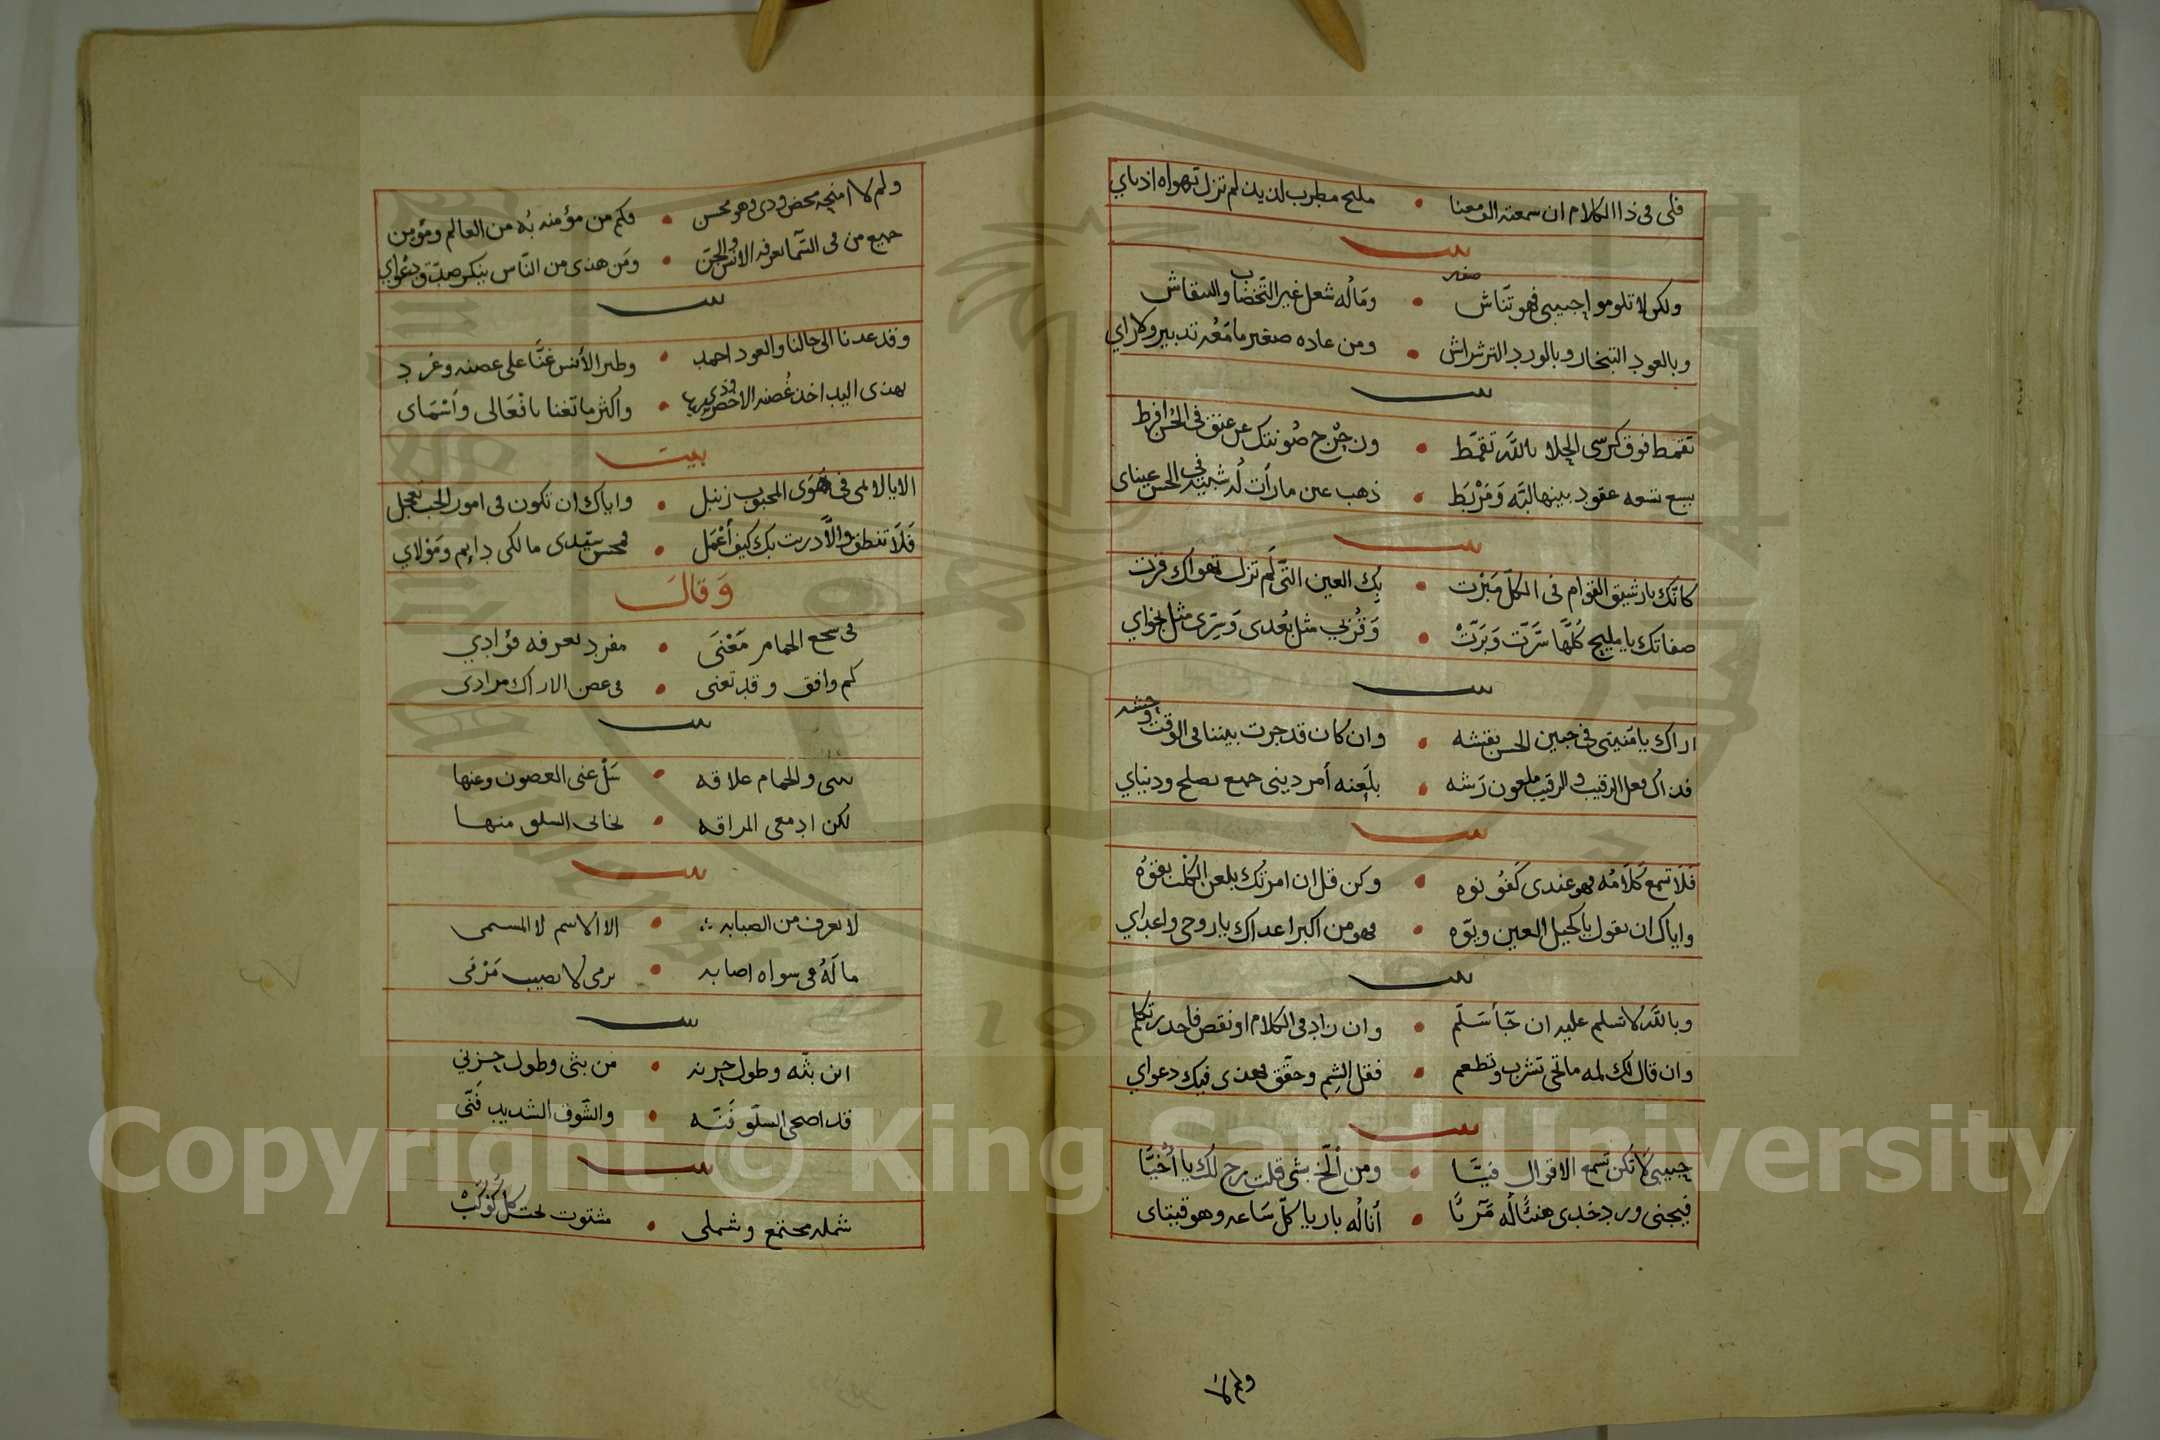 فلى فى ذا الكلام ان سمعته الف معنا • مليح مطرب لديذ لم تزل تهواه اذناي
بيت
صفته
ولكن لا تلوموا حبيبى فهو نقاش • وماله شغل غير التخضاب والنقاش
وبالعود التبخار وبالورد الترشراش • ومن عاده صغير ما معه تدبير ولا راي
بيت
تقمط فوق كرسى الجلا بالله تقمط • عن عنق فى الحسن افرط
سبع تسعه عقود بينها لبه ومربط • ذهب عين مارأت له شبيه فى الحسن عيناى
بيت
كانك يارشيق القوام فى الكل ميزت • بك العين التى لم تزل تهواك قرت
صفاتك يا مليح كلها سرت وبرت • وقربي مثل بعدى وسرى مثل نجواي
بيت
اراك يا منيتى فى جبين الحسن بقشه • وان كان قد جرت بيننا فى الوقت وحشه
فذاك فعل الرقيب والرقيب ملعون رشه • بلعنه أمر دينى جميع يصلح ودنياي
بيت
فلا تسمع كلامه فهو عندى كفو نوه • وكن قل ان امرتك بلعن الكلب بقوه
واياك ان تقول يا كحيل العين وبوه • فهو من اكبر اعداك ياروحى واعداي
بيت
وبالله لا تسلم عليه ان جأ سلم • وان زاد فى الكلام او نقص فاحذر تكلم
وان قال لك لمه ما تجى تشرب وتطعم • فقل الشم وحقق بعدى فيك دعواي
بيت
حبيبى لا تكن تسمع الاقوال فينا • ومن ألخ بشى قلت رح لك يا أخيا
فيجنى ورد خدى هنيئا له مريا • أناله باريا كل ساعه وهو قبتاى
ولم لا
ولم لا امنحه محض ودى وهو محسن • فكم من مؤمنه به من العالم ومؤمن
جميع من فى السما تعرفه الانس والجن • ومن هذى من الناس ينكر صدق دعواي
بيت
وقد عدنا الى حالنا والعود احمد • وطير الأنس غنا على غصنه وغرد
بهذى اليد اخذ غصنه الاخضر وذى يد • وأكثر ما تغنا بافعالى وأسماى
بيت
الا يا لايمى فى هوى المحبوب زنبل • واياك ان تكون فى امور الحب تعجل
فلا تنطق والا درت بك كيف أعمل • فمحسن سيدى مالكى دايم ومولاي
وقال
فى سجع الحمام معنى • مفرد تعرفه فؤادي
كم وافق وقد تغنى • فى غصن الاراك مرادى
بيت
بينى والحمام علاقه • سل عنى الغصون وعنها
لكن ادمعى المراقه • تخالى السلو منها
بيت
لا تعرف من الصبابه • الا الاسم لا المسمى
ماله فى سواه اصابه • يرمى لا يصيب مرمى
بيت
اين بثه وطول حزنه • من بثى وطول حزني
قد اضحى السلو فنه • والشوق الشديد فنى
بيت
شمله مجتمع وشملى • مشتوت تحت كل كوكب